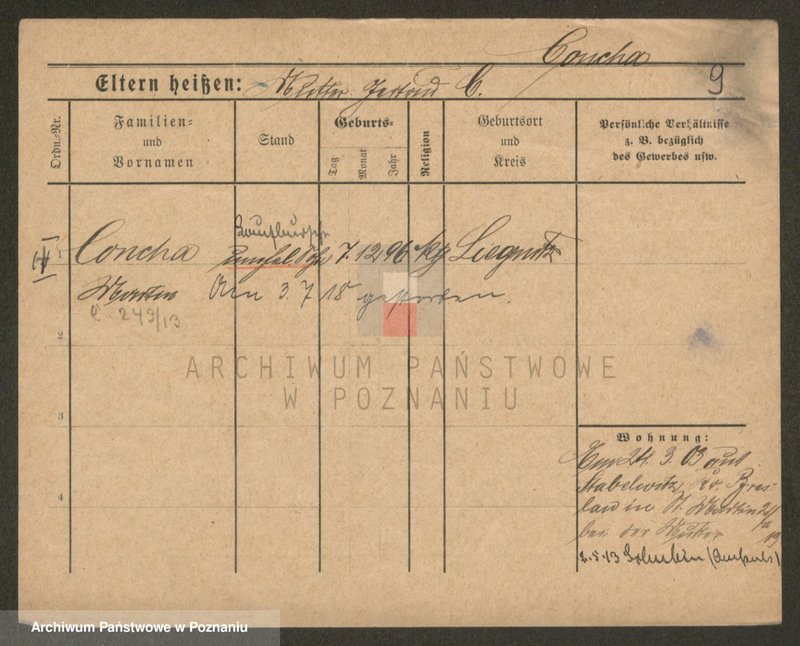 Concha
9
Eltern heißen: Mutter: Gertrud C.
Ordn.-Nr.
Familien-
und
Vornamen
Stand
Geburts-
Tag
Monat
Jahr
Religion
Geburtsort
und
Kreis
Persönliche Verhältnisse
z. B. bezüglich
des Gewerbes usw.
Laufbursche
IV
1
Concha unehel Sohn 7. 12 96 kg Liegnitz
Martin Am 3. 7 18 gestorben.
C. 249/13
2
3
4
ARCHIWUM PAŃSTWOWE
W POZNANIU
Wohnung:
Am 24. 3. 03 aus
Stabelwitz, Kr. Bres-
lau in St. Martin
bei der Mutter
2.5.13
Archiwum Państwowe w Poznaniu